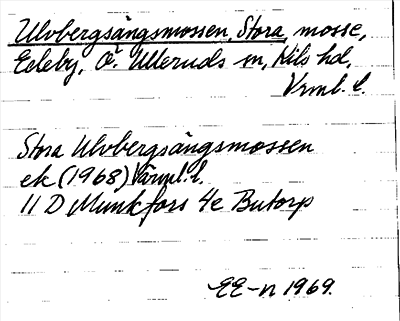 Ulvbergsängsmossen, Stora mosse,
Edeby, Ö. Ulleruds sn, Kils hd,
Vrml. l.
Stora Ulvbergsängsmossen
ek (1968) Värml. l.
11 D Munkfors 4e Butorp
EE-n 1969.